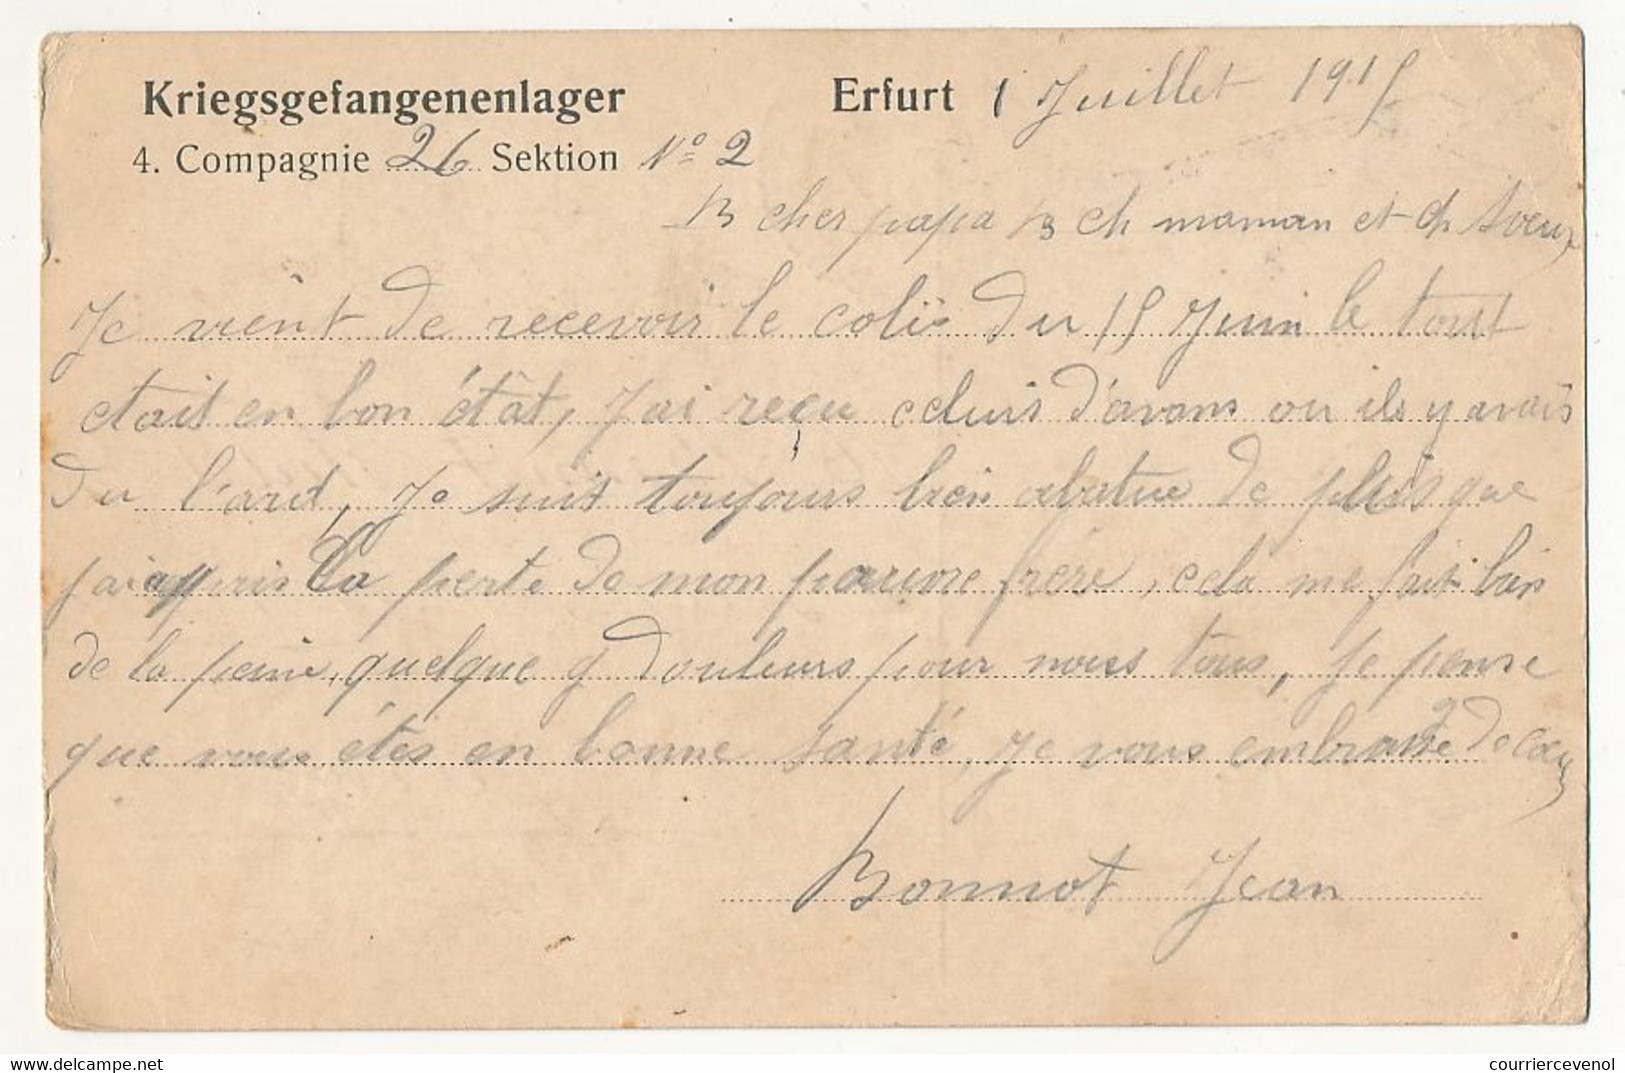 Kriegsgefangenenlager Erfurt 1 Juillet 1915
4. Compagnie 26 Sektion Nº 2
B cher papa B ch maman et ch
Je vient de recevoir le colis du 15 Juin le tout
etait en bon état, J'ai reçu celuis d'avans ou ils y avais
du l'ard, Je suis toujours bien abatue de puis que
j'ai appris la perte de mon pauvre frère, cela me fait bien
de la peine, quelque g douleurs pour nous tous, je pense
que vous étes en bonne santé, Je vous embrasse de cœur
Bonnot Jean
courriercevenol